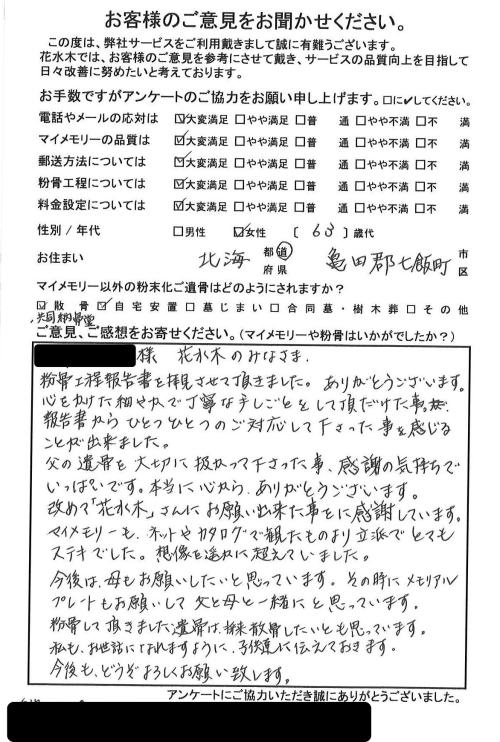 お客様のご意見をお聞かせください。
この度は、弊社サービスをご利用戴きまして誠に有難うございます。
花水木では、お客様のご意見を参考にさせて戴き、サービスの品質向上を目指して
日々改善に努めたいと考えております。
お手数ですがアンケートのご協力をお願い申し上げます。□に✓してください。
電話やメールの応対は ☑大変満足 □やや満足 □普 通 □やや不満 □不 満
マイメモリーの品質は ☑大変満足 □やや満足 □普 通 □やや不満 □不 満
郵送方法については ☑大変満足 □やや満足 □普 通 □やや不満 □不 満
粉骨工程については ☑大変満足 □やや満足 □普 通 □やや不満 □不 満
料金設定については ☑大変満足 □やや満足 □普 通 □やや不満 □不 満
性別 / 年代 □男性 ☑女性 〔 63 〕歳代
お住まい 北海 都道府県 亀田郡七飯町 市区
マイメモリー以外の粉末化ご遺骨はどのようにされますか?
☑散骨 ☑自宅安置 □墓じまい □合同墓・樹木葬 □その他
共同納骨堂
ご意見、ご感想をお寄せください。(マイメモリーや粉骨はいかがでしたか?)
様 花水木のみなさま.
粉骨工程報告書を拝見させて頂きました。ありがとうございます。
心をかけた細やかで丁寧な手しごとをして頂だけた事が、
報告書から ひとつひとつのご対応して下さった事を感じる
ことが出来ました。
父の遺骨を大切に扱かって下さった事、感謝の気持ちで
いっぱいです。本当に心から、ありがとうございます。
改めて「花水木」さんにお願い出来た事をに感謝しています。
マイメモリーも、ネットやカタログで観たものより立派でとても
ステキでした。想像を遥かに超えていました。
今後は、母もお願いしたいと思っています。その時にメモリアル
プレートもお願いして 父と母と一緒にと思っています。
粉骨して頂きました遺骨は、将来散骨したいとも思っています。
私も、お世話になれますように、子供達に伝えておきます。
今後も、どうぞよろしくお願い致します。
アンケートにご協力いただき誠にありがとうございました。